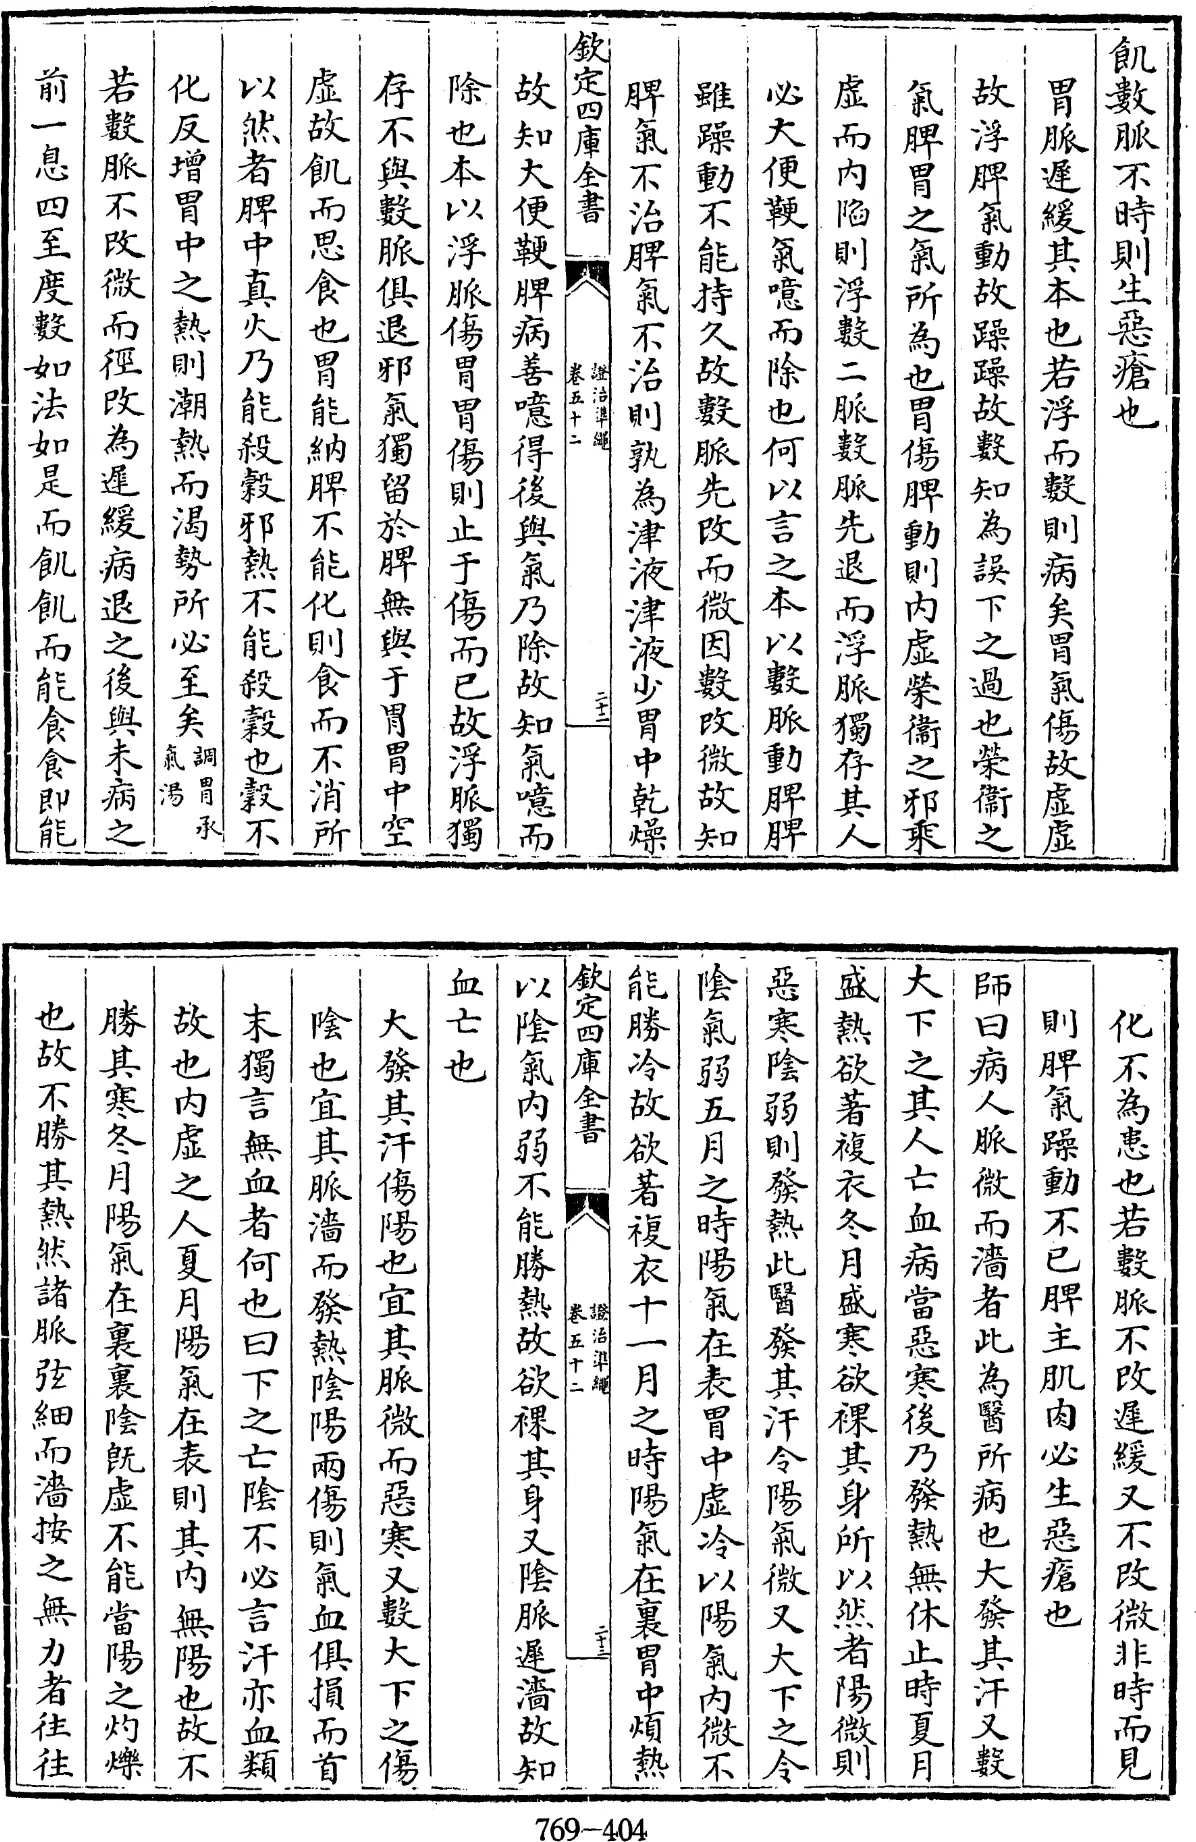 飢數脈不時則生惡瘡也
胃脈遲緩其本也若浮而數則病矣胃氣傷故虛虛
故浮脾氣動故躁躁故數知為誤下之過也榮衞之
氣脾胃之氣所為也胃傷脾動則内虛榮衞之邪乘
虛而内陷則浮數二脈數脈先退而浮脈獨存其人
必大便鞕氣噫而除也何以言之本以數脈動脾脾
雖躁動不能持久故數脈先改而微因數改微故知
脾氣不治脾氣不治則孰為津液津液少胃中乾燥
欽定四庫全書
證治準繩
卷五十二
二十二
故知大便鞕脾病善噫得後與氣乃除故知氣噫而
除也本以浮脈傷胃胃傷則止于傷而已故浮脈獨
存不與數脈俱退邪氣獨留於脾無與于胃胃中空
虛故飢而思食也胃能納脾不能化則食而不消所
以然者脾中真火乃能殺穀邪熱不能殺穀也穀不
化反增胃中之熱則潮熱而渴勢所必至矣調胃承
氣湯
若數脈不改微而徑改為遲緩病退之後與未病之
前一息四至度數如法如是而飢飢而能食食即能
化不為患也若數脈不改遲緩又不改微非時而見
則脾氣躁動不已脾主肌肉必生惡瘡也
師曰病人脈微而濇者此為醫所病也大發其汗又數
大下之其人亡血病當惡寒後乃發熱無休止時夏月
盛熱欲著複衣冬月盛寒欲裸其身所以然者陽微則
惡寒陰弱則發熱此醫發其汗令陽氣微又大下之令
陰氣弱五月之時陽氣在表胃中虛冷以陽氣内微不
能勝冷故欲著複衣十一月之時陽氣在裏胃中煩熱
欽定四庫全書
證治準繩
卷五十二
二十三
以陰氣内弱不能勝熱故欲裸其身又陰脈遲濇故知
血亡也
大發其汗傷陽也宜其脈微而惡寒又數大下之傷
陰也宜其脈濇而發熱陰陽兩傷則氣血俱損而首
末獨言無血者何也曰下之亡陰不必言汗亦血類
故也内虛之人夏月陽氣在表則其内無陽也故不
勝其寒冬月陽氣在裏裏陰既虛不能當陽之灼爍
也故不勝其熱然諸脈弦細而濇按之無力者往往
769-404